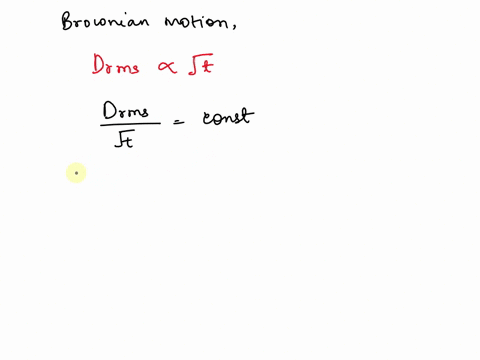 Brownian motion,
Drms ∝ √t
Drms / √t = const